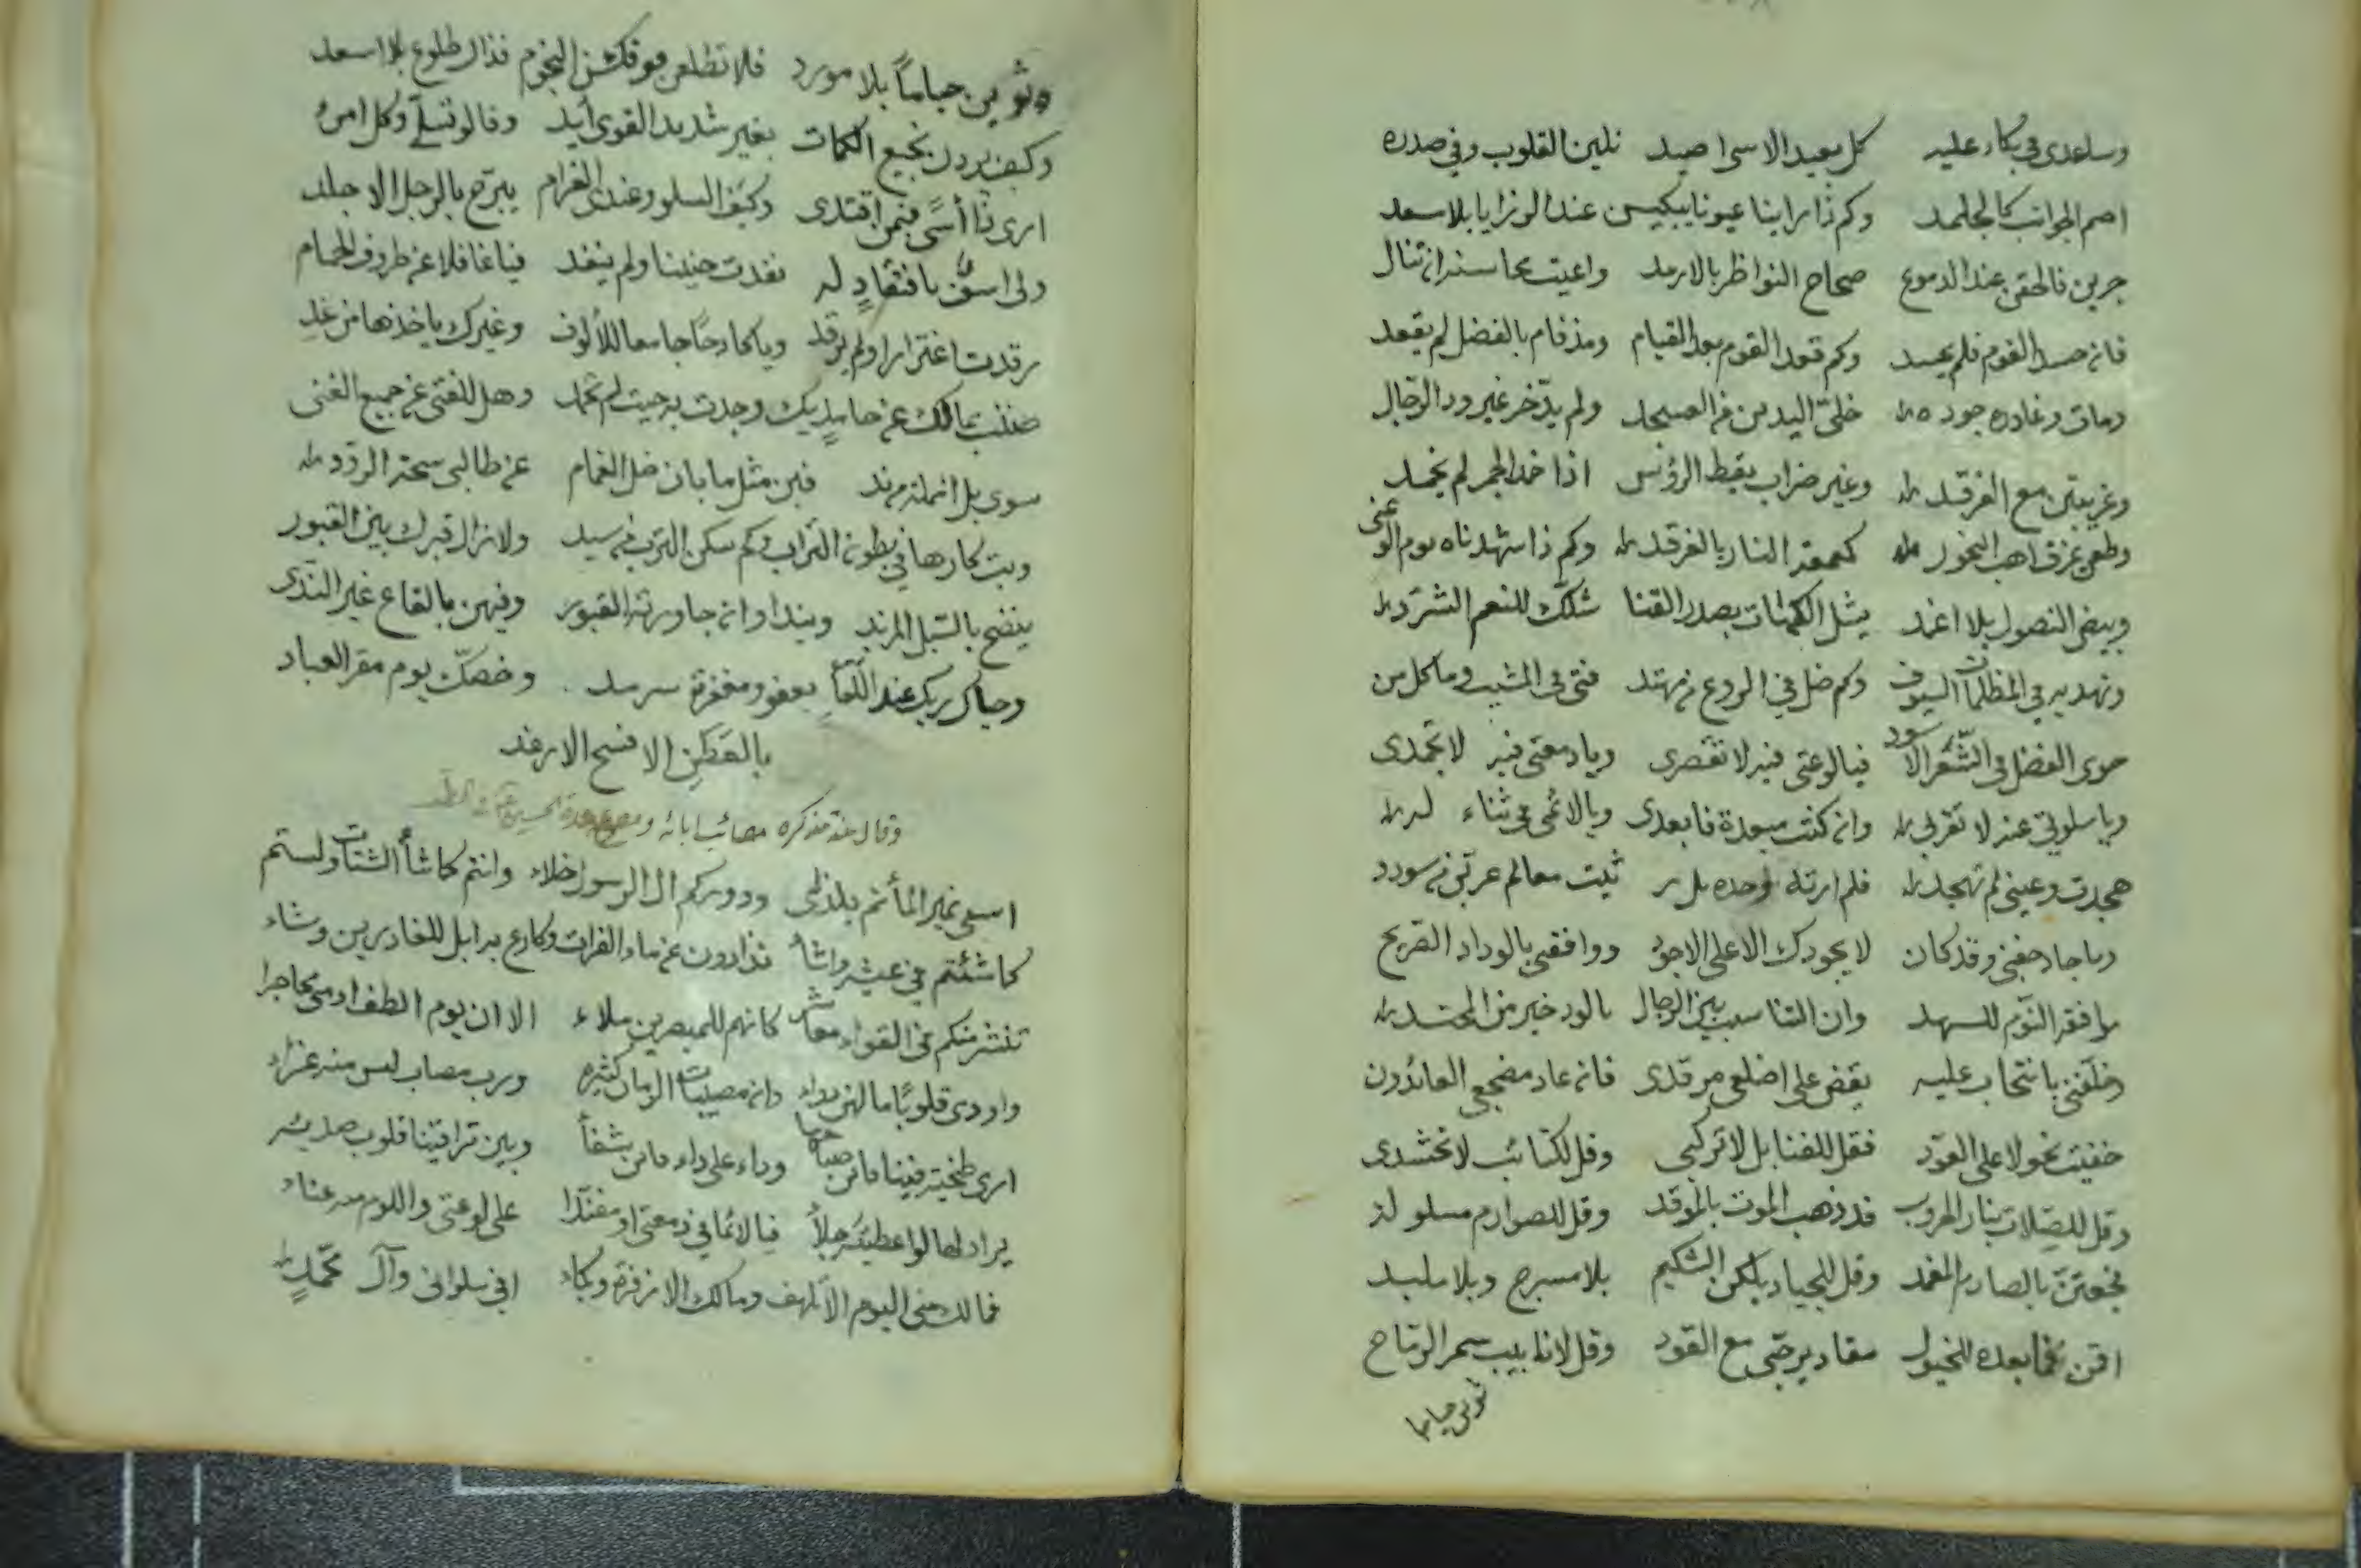 وساعدى فى بكاء عليه كل بعيد الاسى اصيد نلين القلوب وفى صدره
اصم الجوانب كالجلمد وكم ذا راينا عيونا يبكين عند الرزايا بلا سعد
جرين فالحقن عند الدموع صحاح النواظر بالارمد واعيت محاسنه ان تنال
فانه حسد القوم فلم يحسد وكم قعد القوم بعد القيام ومذ قام بالفضل لم يقعد
ومات وغادره جوده خلىّ اليدين من العسجد ولم يدّخر غير ود الرجال
وغربتين مع الفرقد وغير ضراب يقط الرؤس اذا خمد الجمر لم يخمد
وطعن يمزق اهب النحور كمعمعة النار بالغرقد وكم ذا شهدناه يوم الوغى
وبيض النصول بلا اغمد يشل الكماة بصدر القنا شلّك للنعم الشرّد
وتهديه فى المظلمات السيوف وكم ضل فى الروع من مهتد فتى فى المشيب وما كل من
حوى الفضل فى الشّعر الاسود فيا لوعتى فيه لا تقصرى ويا دمعتى فيه لا تجمدى
ويا سلوتى عنه لا تقربى وانه كنت مبعدة فابعدى ويا لائمى فى ثناء له
هجدت وعينى لم تهجد فلم ارثه وحده بل ر ثيت معالم عرّتى من سودد
وما جاد جفنى وقد كان لا يجود لك الا على الاجود ووافقنى بالوداد القريح
موافقة النوم للسهد وان التناسب بين الرجال بالود خير من المحتد
وخلّفنى بانتحاب عليه يقض على اضلعى مرقدى فانه عاد مضجعى العائدون
خفيت نحولا على العوّد فقل للقنابل لا تركبى وقل لكتائب لا تحشدى
وقل للصّلاة بنار الحروب قد ذهب الموت بالموقد وقل للصوارم مسلولة
فجعتنّ بالصارم المغمد وقل للجياد يلكن الشكيم بلا مسرج وبلا ملبد
اقمن فما بعده للخيول مقاد يرجّى مع القوّد وقل لانابيب سمر الرماح
ثوين حياما
ثوين حياماً بلا مورد فلا تطلعن فوقكن النجوم فذاك طلوع بلا اسعد
وكيف يردن نجيع الكمات بغير شديد القوى أيد وقالو تسلّ وكل امرئ
ارى ذا أسًى فبمن اقتدى وكيف السلو وعندى الغرام يبرّح بالرجل الاجلد
ولى اسوةٌ بافتقادٍ له نفدت حنينا ولم ينفد فيا غافلا عن طروق الحمام
رقدت اغترارا ولم يرقد ويا كادحًا جامعا للألوف وغيرك ياخذها من غد
ضننت بمالك عن حامديك وجدت به حيث لم تحمد وهل للفتى عن جميع الغنى
سوى بل انملة من ند فبن مثل ما بان ظل الغمام عن طالبى سحة الرود
وبت كارها فى بطونه التراب وكم سكن الترب من سيد ولا زال قبرك بين القبور
ينضح بالسّبل المزبد ويندا وانه جاورته القبور وفيهن بالقاع غير الندّى
وحيّاك ربك عند اللّقا بعفو ومغفرة سرمد وخصّك يوم مقر العباد
بالعَطَن الافسح الارغد
اسقى نمير الماء ثم يلذلى ودوركم ال الرسول خلاء وانتم كما شأ الشتات ولستم
كما شئتم فى عيشه واشأ تذادون عن ماء الفرات وكارع به ابل للغادرين وشاء
تنشر منكم فى القواء معاشر كانهم للمبصرين ملاء الا ان يوم الطف ادمى محاجرا
واودى قلوبًا ما لهن دواء وانه مصيبات الزمان كثيره ورب مصاب ليس منه عزاء
ارى طخية فينا فاين صباحها وداء على داء فاين شفأ وبين تراقينا قلوب صديئه
يراد لها لو اعطيته جلأ فيا لائما فى دمعتى او مفندا على لوعتى واللوم منه عناء
فما لك منى اليوم الا تلهف وما لك الا زفرة وبكاء افى سلوانى وآل محمّدٍ